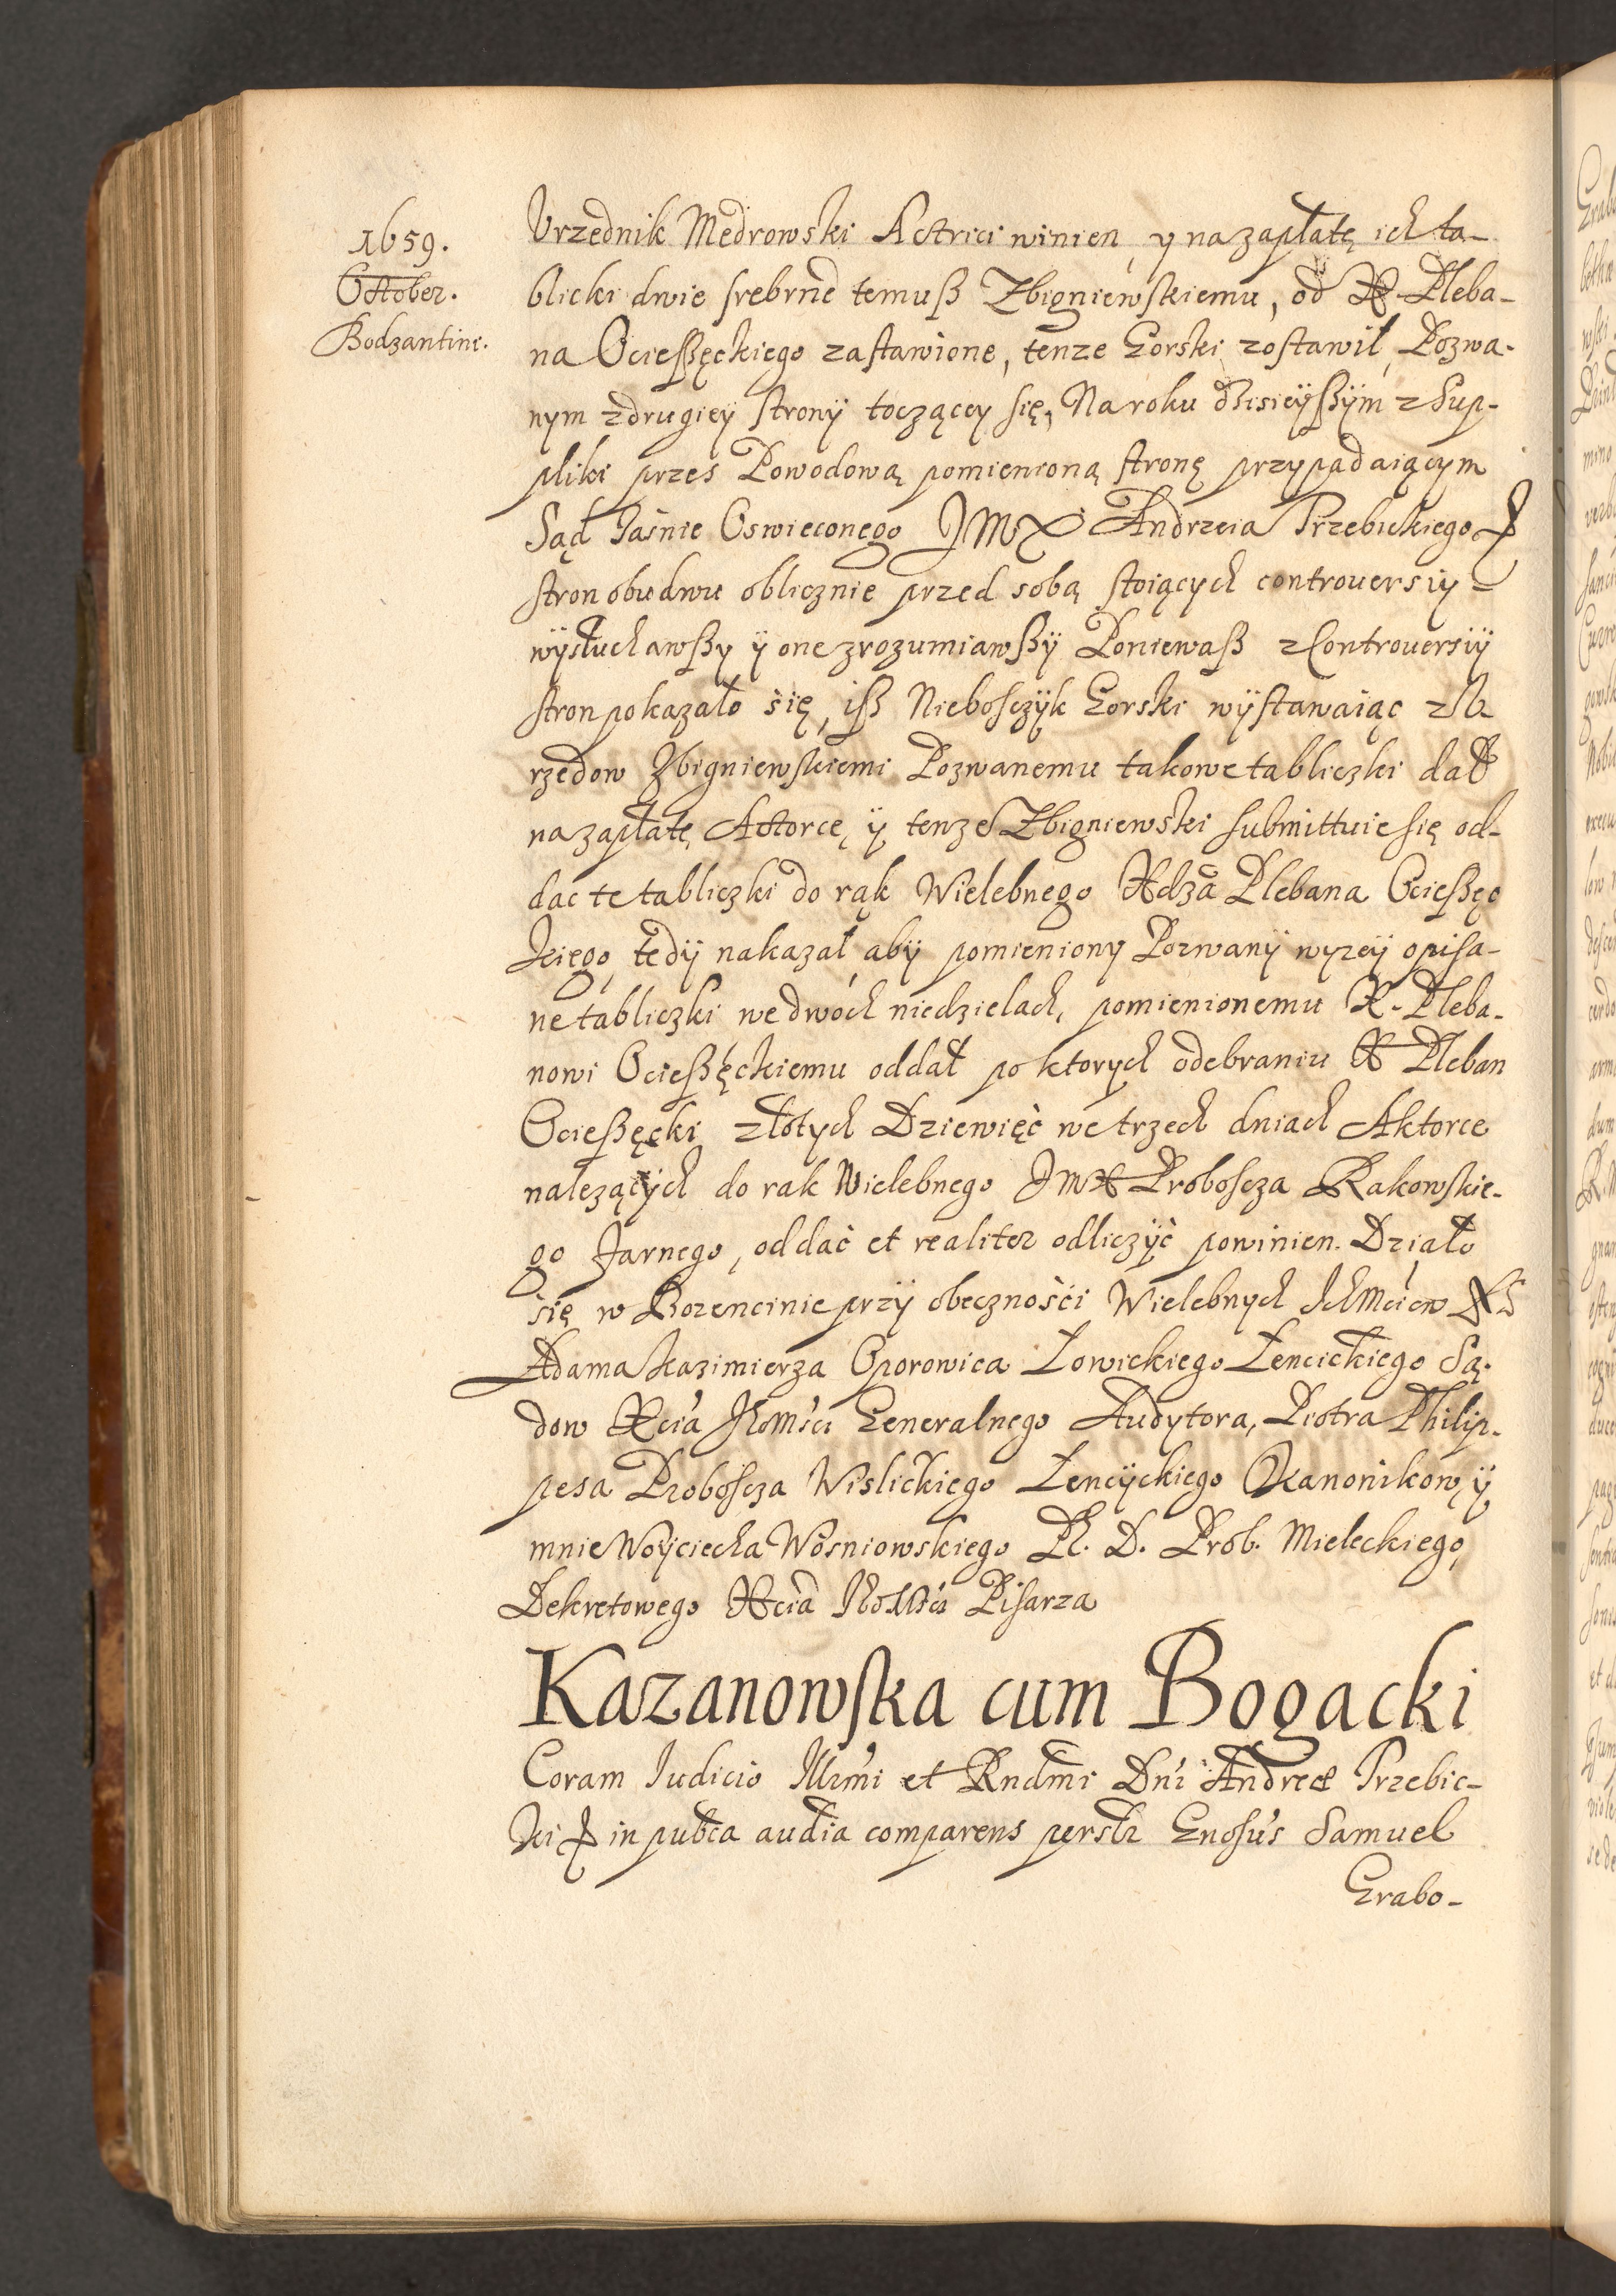 1659.
October.
Bodzantine.
Vrzednik Medrowski Actrici winien, y na zapłatę ich ta-
blicki dwie srebrne temuß Zbigniewskiemu, od X. Pleba-
na Ocießęckiego zastawione, tenze Gorski zostawił, Pozwa-
nym z drugiey strony toczącey się, Na roku dzisieyßym z Sup-
pliki przes Powodową pomienioną stronę przypadaiącym
Sąd Jaśnie Oswieconego JMX Andrzeia Trzebickiego
stron obudwu oblicznie przed sobą stoiących controuersiy
wysłuchawßy y one zrozumiawßy Poniewaß z Controuersiy
stron pokazało się, iß Nieboszczyk Gorski wystawaiąc z V-
rzedow Zbigniewskiemi Pozwanemu takowe tabliczki dał
na zapłatę Actorce, y tenze Zbigniewski submittuie się od-
dac te tabliczki do rąk Wielebnego Xdza Plebana Ocießęc
kiego, tedy nakazał, aby pomieniony Pozwany wyzey opisa-
ne tabliczki we dwoch niedzielach, pomienionemu X. Pleba-
nowi Ocießęckiemu oddał po ktorych odebraniu X Pleban
Ocießęcki złotych Dziewięć we trzech dniach Aktorce
nalezących do rak Wielebnego JMX Proboscza Rakowskie-
go Farnego, oddać et realiter odliczyć powinien. Działo
się w Bozencinie przy obecznośći Wielebnych Ich Mciow XX
Adama Kazimierza Oporowica Łowickiego Łencickiego Są-
dow Xcia JEoMści Generalnego Audytora, Piotra Philip-
pesa Proboscza Wislickiego Łencyckiego Kanonikow, y
mnie Woyciecha Wosniowskiego Pl. D. Prob. Mieleckiego,
Dekretowego Xcia JEoMści Pisarza
Kazanowska cum Bogacki
Coram Iudicio Illrmi et Rndmi Dni Andreæ Trzebic-
ki in pubca audia comparens perslr Gnosus Samuel
Grabo-